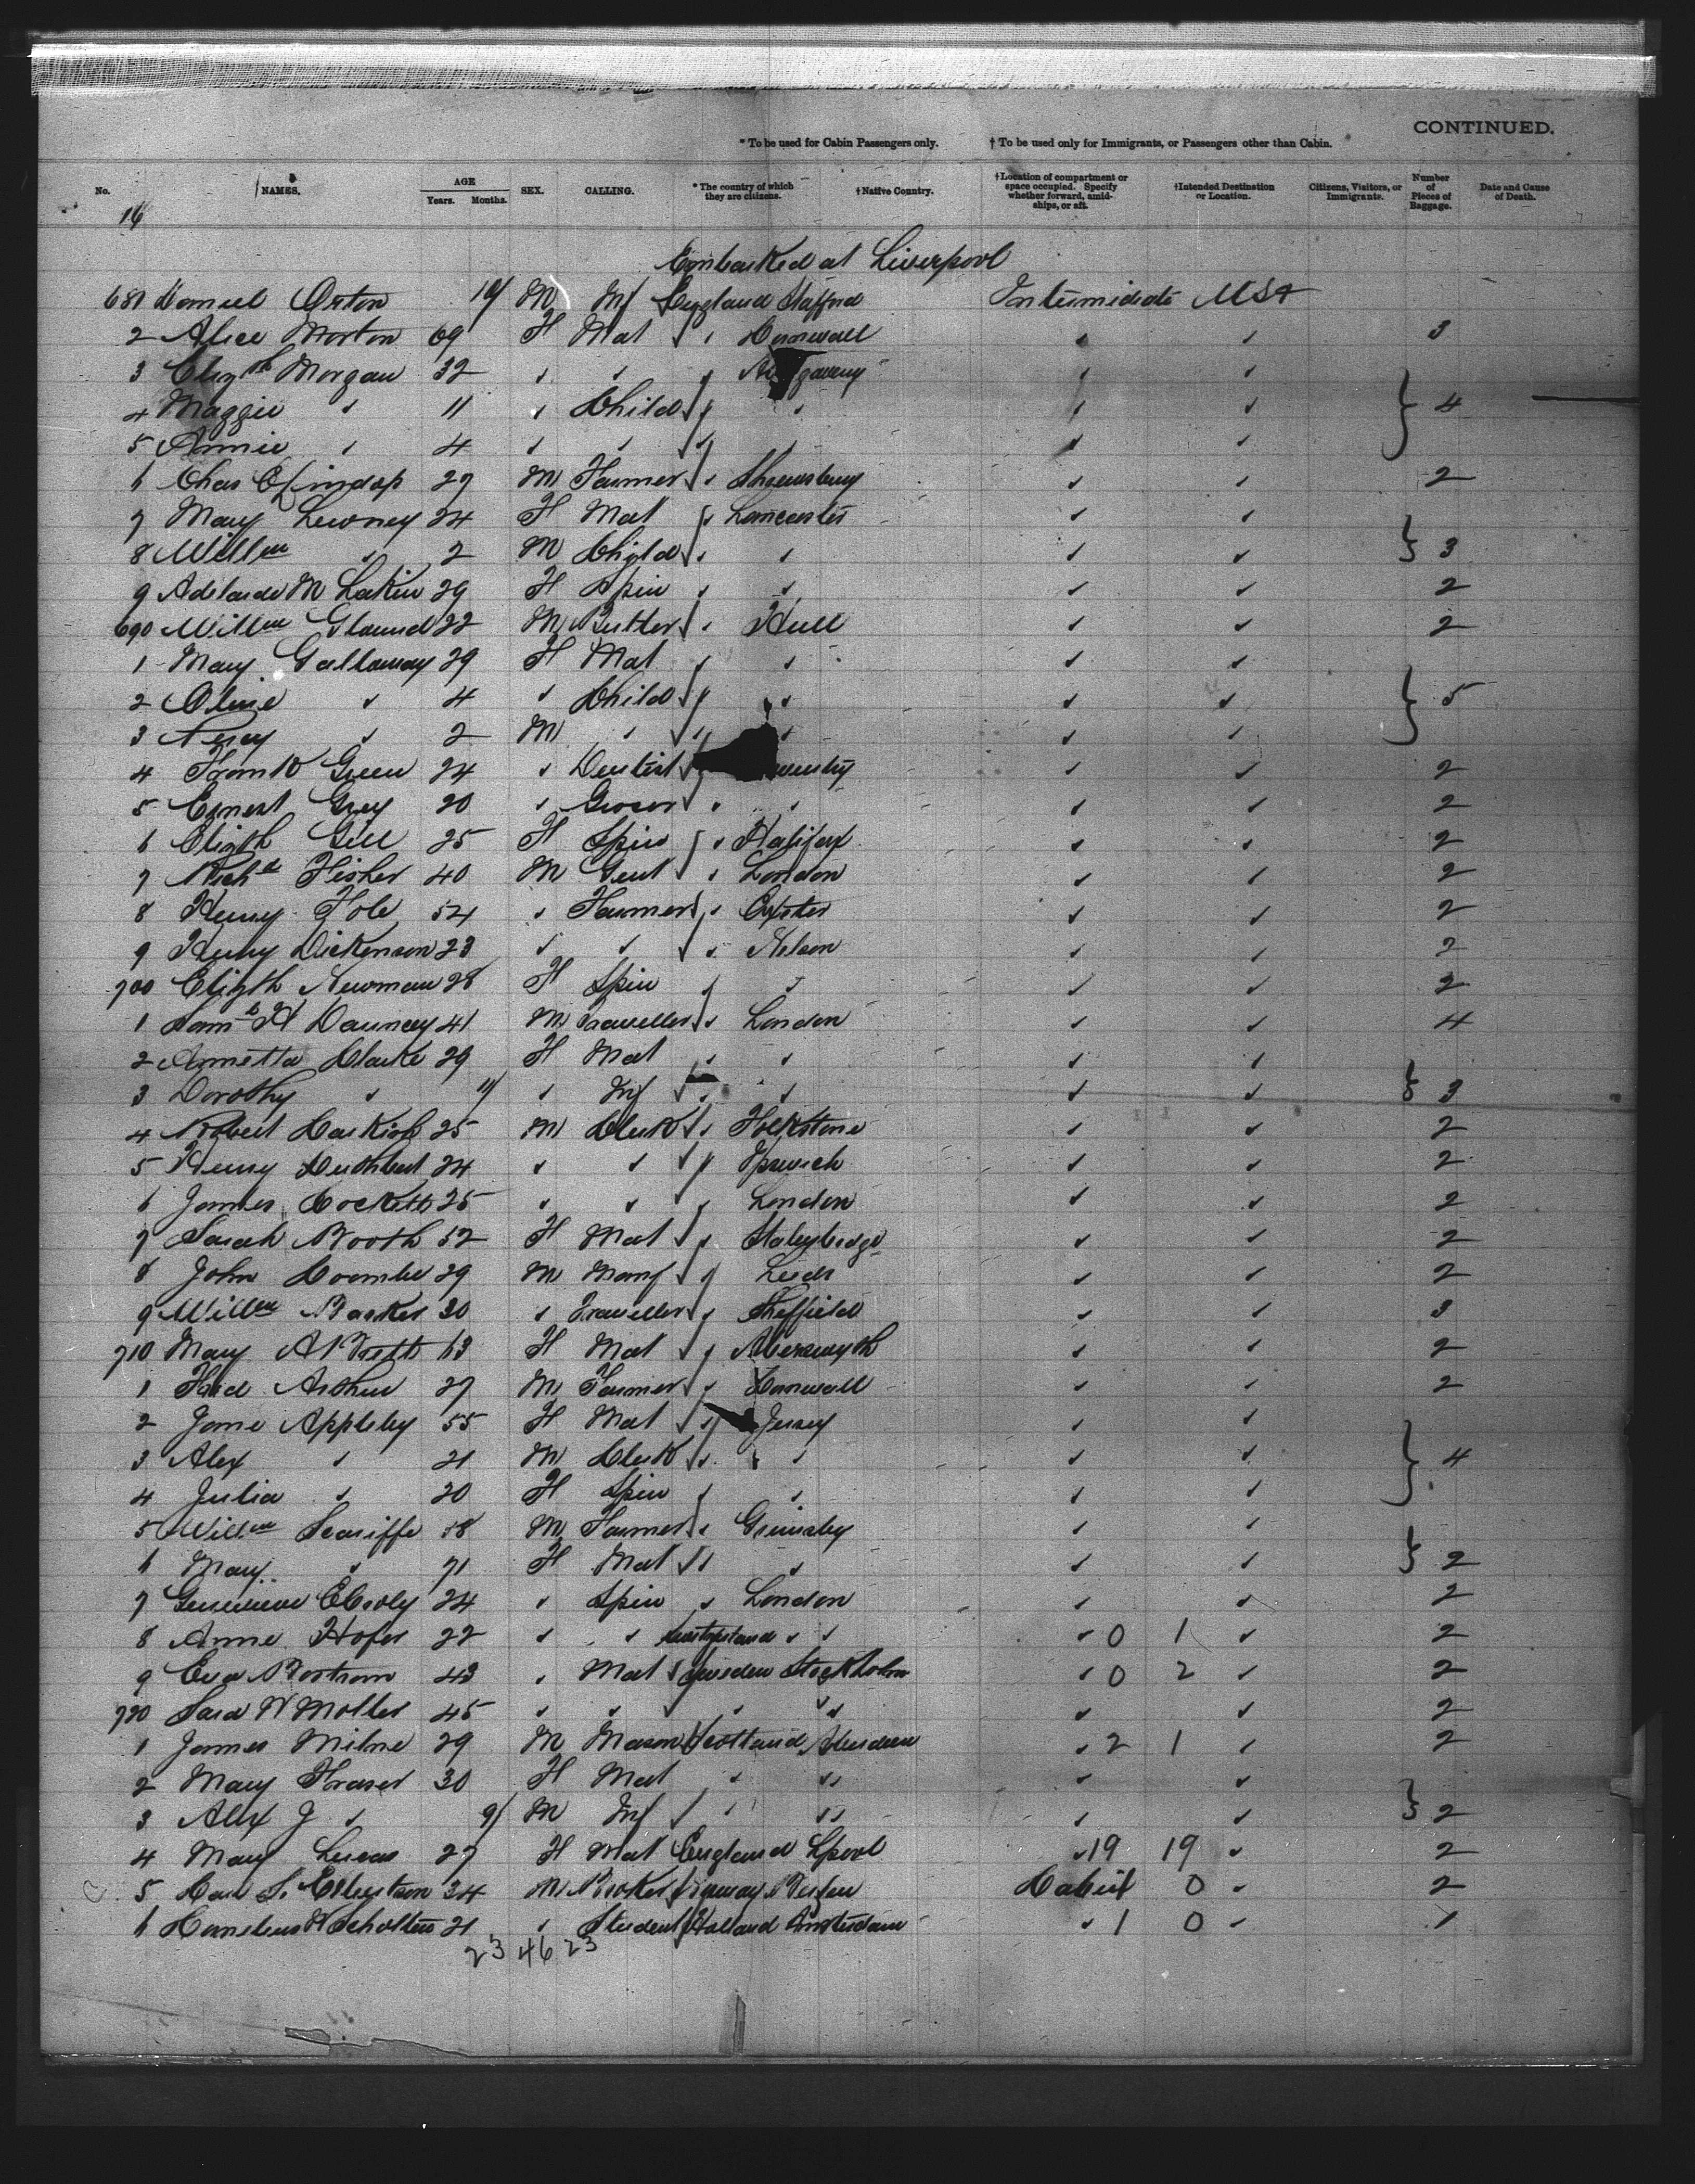 CONTINUED.
* To be used for Cabin Passengers only. † To be used only for Immigrants, or Passengers other than Cabin.
No. NAMES. AGE Years. Months. SEX. CALLING. * The country of which they are citizens. † Native Country. † Location of compartment or space occupied. Specify whether forward, amidships, or aft. † Intended Destination or Location. Citizens, Visitors, or Immigrants. Number of Pieces of Baggage. Date and Cause of Death.
16
Embarked at Liverpool
681 Orton 10/ M Inf England Stafford Intermidate USA
2 Alice Morton 69 F Mat " " Cornwall " " 3
3 Elizth Morgan 32 " " " " "
4 Maggie " 11 " Child " " " " } 4
5 Annie " 4 " " " " " "
6 Chas 27 M Farmer " Shrewsbury " " 2
7 Mary Lewney 24 F Mat " Lancaster " "
8 Willm " 2 M Child " " " " } 3
9 Adelaide M Lakin 29 F Spin " " " " 2
690 Willm 22 M Butler " Hull " " 2
1 Mary Gallaway 29 F Mat " " " "
2 Olive " 4 " Child " " " " } 5
3 Percy " 2 M " " " " "
4 Frank Green 24 " Dentist " " 2
5 Ernest Grey 20 " Grocer " " " " 2
6 Elizth Gill 25 F Spin " Halifax " " 2
7 Richd Fisher 40 M Gent " London " " 2
8 Henry Hole 54 " Farmer " Exeter " " 2
9 Henry Dickenson 23 " " " Nelson " " 2
700 Elizth Newman 28 F Spin " " " " 2
1 Saml H Dauncey 41 M Traveller " London " " 4
2 Annetta Clarke 29 F Mat " " " "
3 Dorothy " 11/ " Inf " " " " } 3
4 Robert 25 M Clerk " Folkstone " " 2
5 Henry Cuthbert 24 " " " Ipswich " " 2
6 James Cockett 25 " " " London " " 2
7 Sarah Booth 52 F Mat " Staleybridge " " 2
8 John Coombe 29 M Manf " Leeds " " 2
9 Willm Barker 30 " Traveller " Sheffield " " 3
710 Mary A 63 F Mat " " " 2
1 Fred Arthur 27 M Farmer " Cornwall " " 2
2 Jane Appleby 55 F Mat " Jersey " "
3 Alex " 21 M Clerk " " " " } 4
4 Julia " 20 F Spin " " " "
5 Willm Searliffe 58 M Farmer " Grimsby " "
6 Mary " 71 F Mat " " " " } 2
7 Genevieve 24 " Spin " London " " 2
8 Anne Hofer 22 " " Switzerland " " " 0 1 " 2
9 Eva Bostrom 43 " Mat Sweden Stockholm " 0 2 " 2
720 Sara W Moller 45 " " " " " " " 2
1 James Milne 29 M Mason Scotland Aberdeen " 2 1 " 2
2 Mary Fraser 30 F Mat " " " " "
3 Alex J " 9/ M Inf " " " " " } 2
4 Mary Lucas 27 F Mat England Lpool " 19 19 " 2
5 Carl S. 34 M Broker Norway Bergen Cabin 0 " 2
6 Cornelius W Scholten 21 " Student Holland Amsterdam " 1 0 " 1
23 46 23